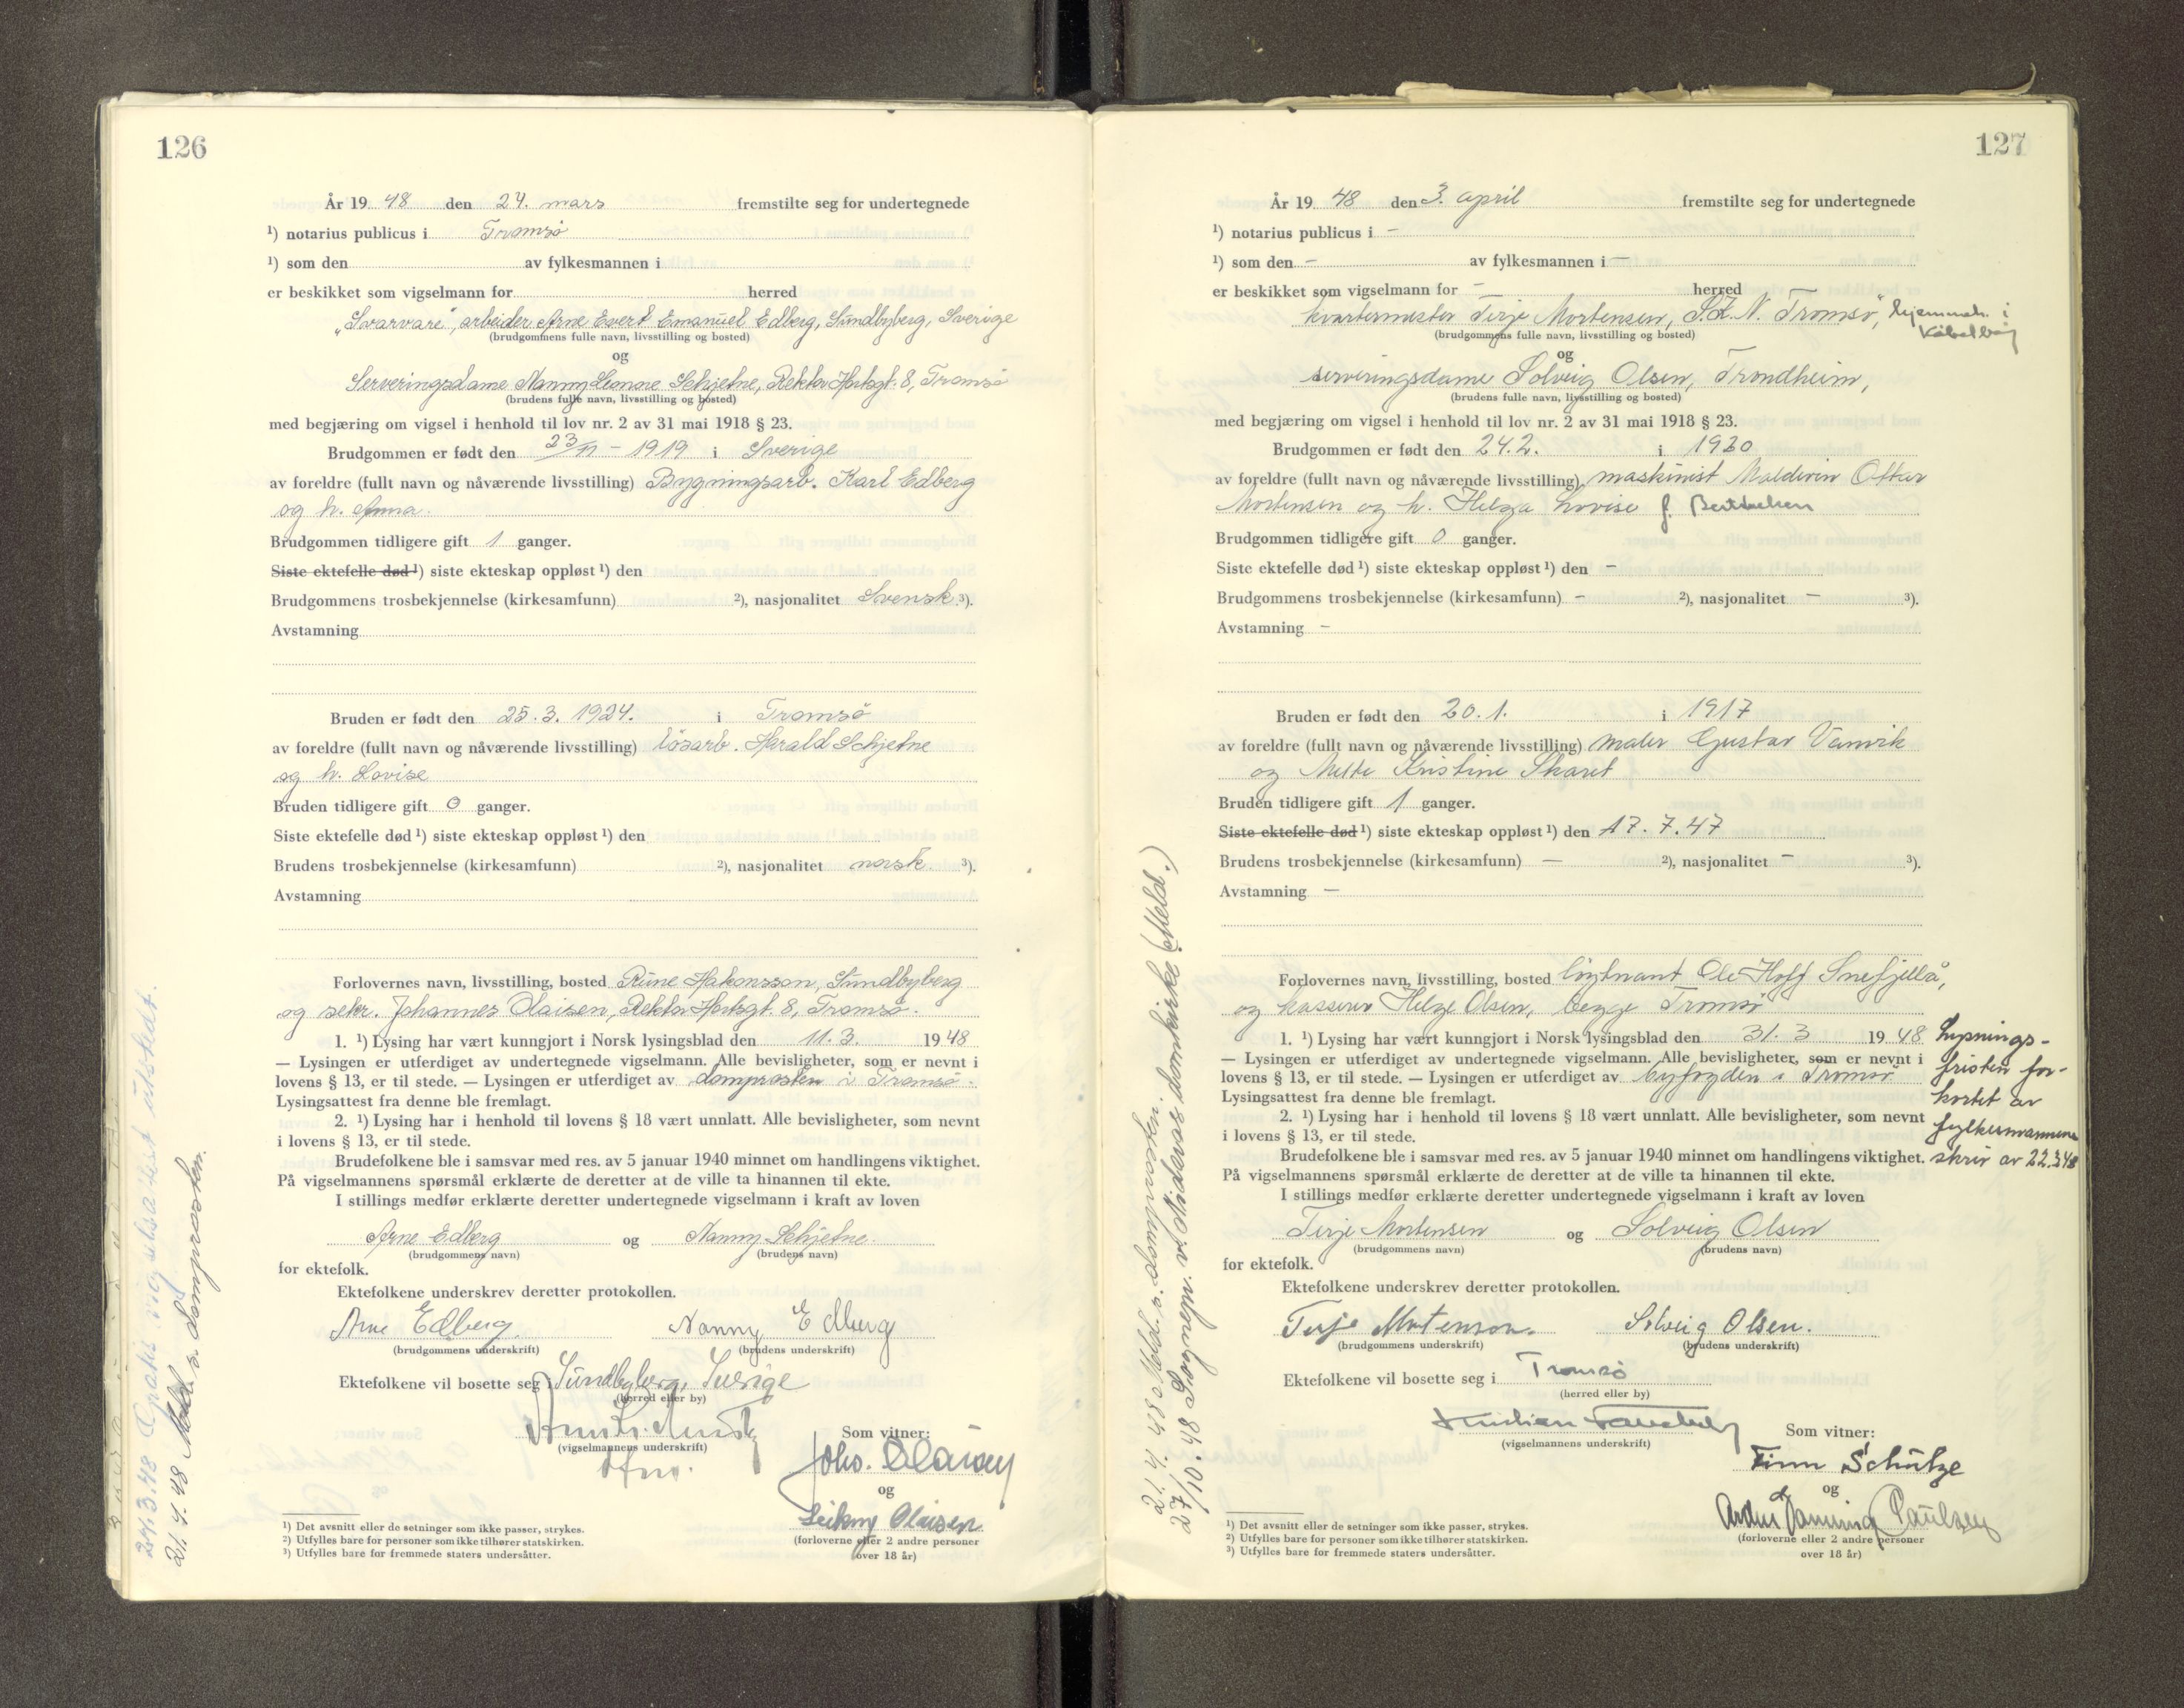 126
År 19 48 den 24. mars fremstilte seg for undertegnede
¹) notarius publicus i Tromsø
¹) som den av fylkesmannen i
er beskikket som vigselmann for herred
„Svarvare", arbeider Arne Evert Emanuel Edberg, Sundbyberg, Sverige
(brudgommens fulle navn, livsstilling og bosted)
og
Serveringsdame Nanny Schjetne, Rektor Horstsgt. 8, Tromsø
(brudens fulle navn, livsstilling og bosted)
med begjæring om vigsel i henhold til lov nr. 2 av 31 mai 1918 § 23.
Brudgommen er født den 23/11 - 1919 i Sverige
av foreldre (fullt navn og nåværende livsstilling) Bygningsarb. Karl Edberg
og h. Anna.
Brudgommen tidligere gift 1 ganger.
Siste ektefelle død ¹) siste ekteskap oppløst ¹) den
Brudgommens trosbekjennelse (kirkesamfunn) ²), nasjonalitet Svensk ³).
Avstamning
Bruden er født den 25. 3. 1924. i Tromsø
av foreldre (fullt navn og nåværende livsstilling) løsarb. Harald Schjetne
og h. Lovise
Bruden tidligere gift 0 ganger.
Siste ektefelle død ¹) siste ekteskap oppløst ¹) den
Brudens trosbekjennelse (kirkesamfunn) ²), nasjonalitet norsk ³).
Avstamning
Forlovernes navn, livsstilling, bosted Rune Hakonsson, Sundbyberg
og sekr. Johannes Olaisen, Rektor Horstsgt. 8, Tromsø.
1. ¹) Lysing har vært kunngjort i Norsk lysingsblad den 11. 3. 19 48
— Lysingen er utferdiget av undertegnede vigselmann. Alle bevisligheter, som er nevnt i
lovens § 13, er til stede. — Lysingen er utferdiget av domprosten i Tromsø.
Lysingsattest fra denne ble fremlagt.
2. ¹) Lysing har i henhold til lovens § 18 vært unnlatt. Alle bevisligheter, som nevnt
i lovens § 13, er til stede.
Brudefolkene ble i samsvar med res. av 5 januar 1940 minnet om handlingens viktighet.
På vigselmannens spørsmål erklærte de deretter at de ville ta hinannen til ekte.
I stillings medfør erklærte deretter undertegnede vigselmann i kraft av loven
Arne Edberg og Nanny Schjetne.
(brudgommens navn) (brudens navn)
for ektefolk.
Ektefolkene underskrev deretter protokollen.
Arne Edberg. Nanny Edberg
(brudgommens underskrift) (brudens underskrift)
Ektefolkene vil bosette seg i Sundbyberg, Sverige
(herred eller by)
(vigselmannens underskrift)
Som vitner:
Johs. Olaisen
og
Leikny Olaisen
(forloverne eller 2 andre personer
over 18 år)
¹) Det avsnitt eller de setninger som ikke passer, strykes.
²) Utfylles bare for personer som ikke tilhører statskirken.
³) Utfylles bare for fremmede staters undersåtter.
24. 3. 48 Gratis vigselsattest utstedt.
21. 4. 48 Meld. t. domprosten.
127
År 19 48 den 3. april fremstilte seg for undertegnede
¹) notarius publicus i -
¹) som den - av fylkesmannen i -
er beskikket som vigselmann for - herred
kvartermester Terje Mortensen, Tromsø, hjemmeh. i
Kabelvåg
(brudgommens fulle navn, livsstilling og bosted)
og
serveringsdame Solveig Olsen, Trondheim,
(brudens fulle navn, livsstilling og bosted)
med begjæring om vigsel i henhold til lov nr. 2 av 31 mai 1918 § 23.
Brudgommen er født den 24. 2. i 1920
av foreldre (fullt navn og nåværende livsstilling) maskinist Ottar
Mortensen og h. Helga Lovise f. Berthelsen
Brudgommen tidligere gift 0 ganger.
Siste ektefelle død ¹) siste ekteskap oppløst ¹) den -
Brudgommens trosbekjennelse (kirkesamfunn) - ²), nasjonalitet - ³).
Avstamning -
Bruden er født den 20. 1. i 1917
av foreldre (fullt navn og nåværende livsstilling) maler Gustav Vanvik
og Mette Kristine Skaret
Bruden tidligere gift 1 ganger.
Siste ektefelle død ¹) siste ekteskap oppløst ¹) den 17. 7. 47
Brudens trosbekjennelse (kirkesamfunn) — ²), nasjonalitet - ³).
Avstamning —
Forlovernes navn, livsstilling, bosted løytnant Ole Hoff Snefjellå,
og kasserer Helge Olsen, begge Tromsø
1. ¹) Lysing har vært kunngjort i Norsk lysingsblad den 31. 3 19 48
— Lysingen er utferdiget av undertegnede vigselmann. Alle bevisligheter, som er nevnt i
lovens § 13, er til stede. — Lysingen er utferdiget av byfogden i Tromsø
Lysingsattest fra denne ble fremlagt.
2. ¹) Lysing har i henhold til lovens § 18 vært unnlatt. Alle bevisligheter, som nevnt
i lovens § 13, er til stede.
Brudefolkene ble i samsvar med res. av 5 januar 1940 minnet om handlingens viktighet.
På vigselmannens spørsmål erklærte de deretter at de ville ta hinannen til ekte.
I stillings medfør erklærte deretter undertegnede vigselmann i kraft av loven
Lysnings-
fristen for-
kortet av
fylkesmannens
skriv av 22.3 48
Terje Mortensen og Solveig Olsen
(brudgommens navn) (brudens navn)
for ektefolk.
Ektefolkene underskrev deretter protokollen.
Terje Mortensen. Solveig Olsen.
(brudgommens underskrift) (brudens underskrift)
Ektefolkene vil bosette seg i Tromsø
(herred eller by)
(vigselmannens underskrift)
Som vitner:
Finn Schütze
og
Paulsen
(forloverne eller 2 andre personer
over 18 år)
¹) Det avsnitt eller de setninger som ikke passer, strykes.
²) Utfylles bare for personer som ikke tilhører statskirken.
³) Utfylles bare for fremmede staters undersåtter.
21. 4. 48 Meld. t. domprosten.
27/10. 48 Sognepr. v. Nidaros domkirke (Meld.)